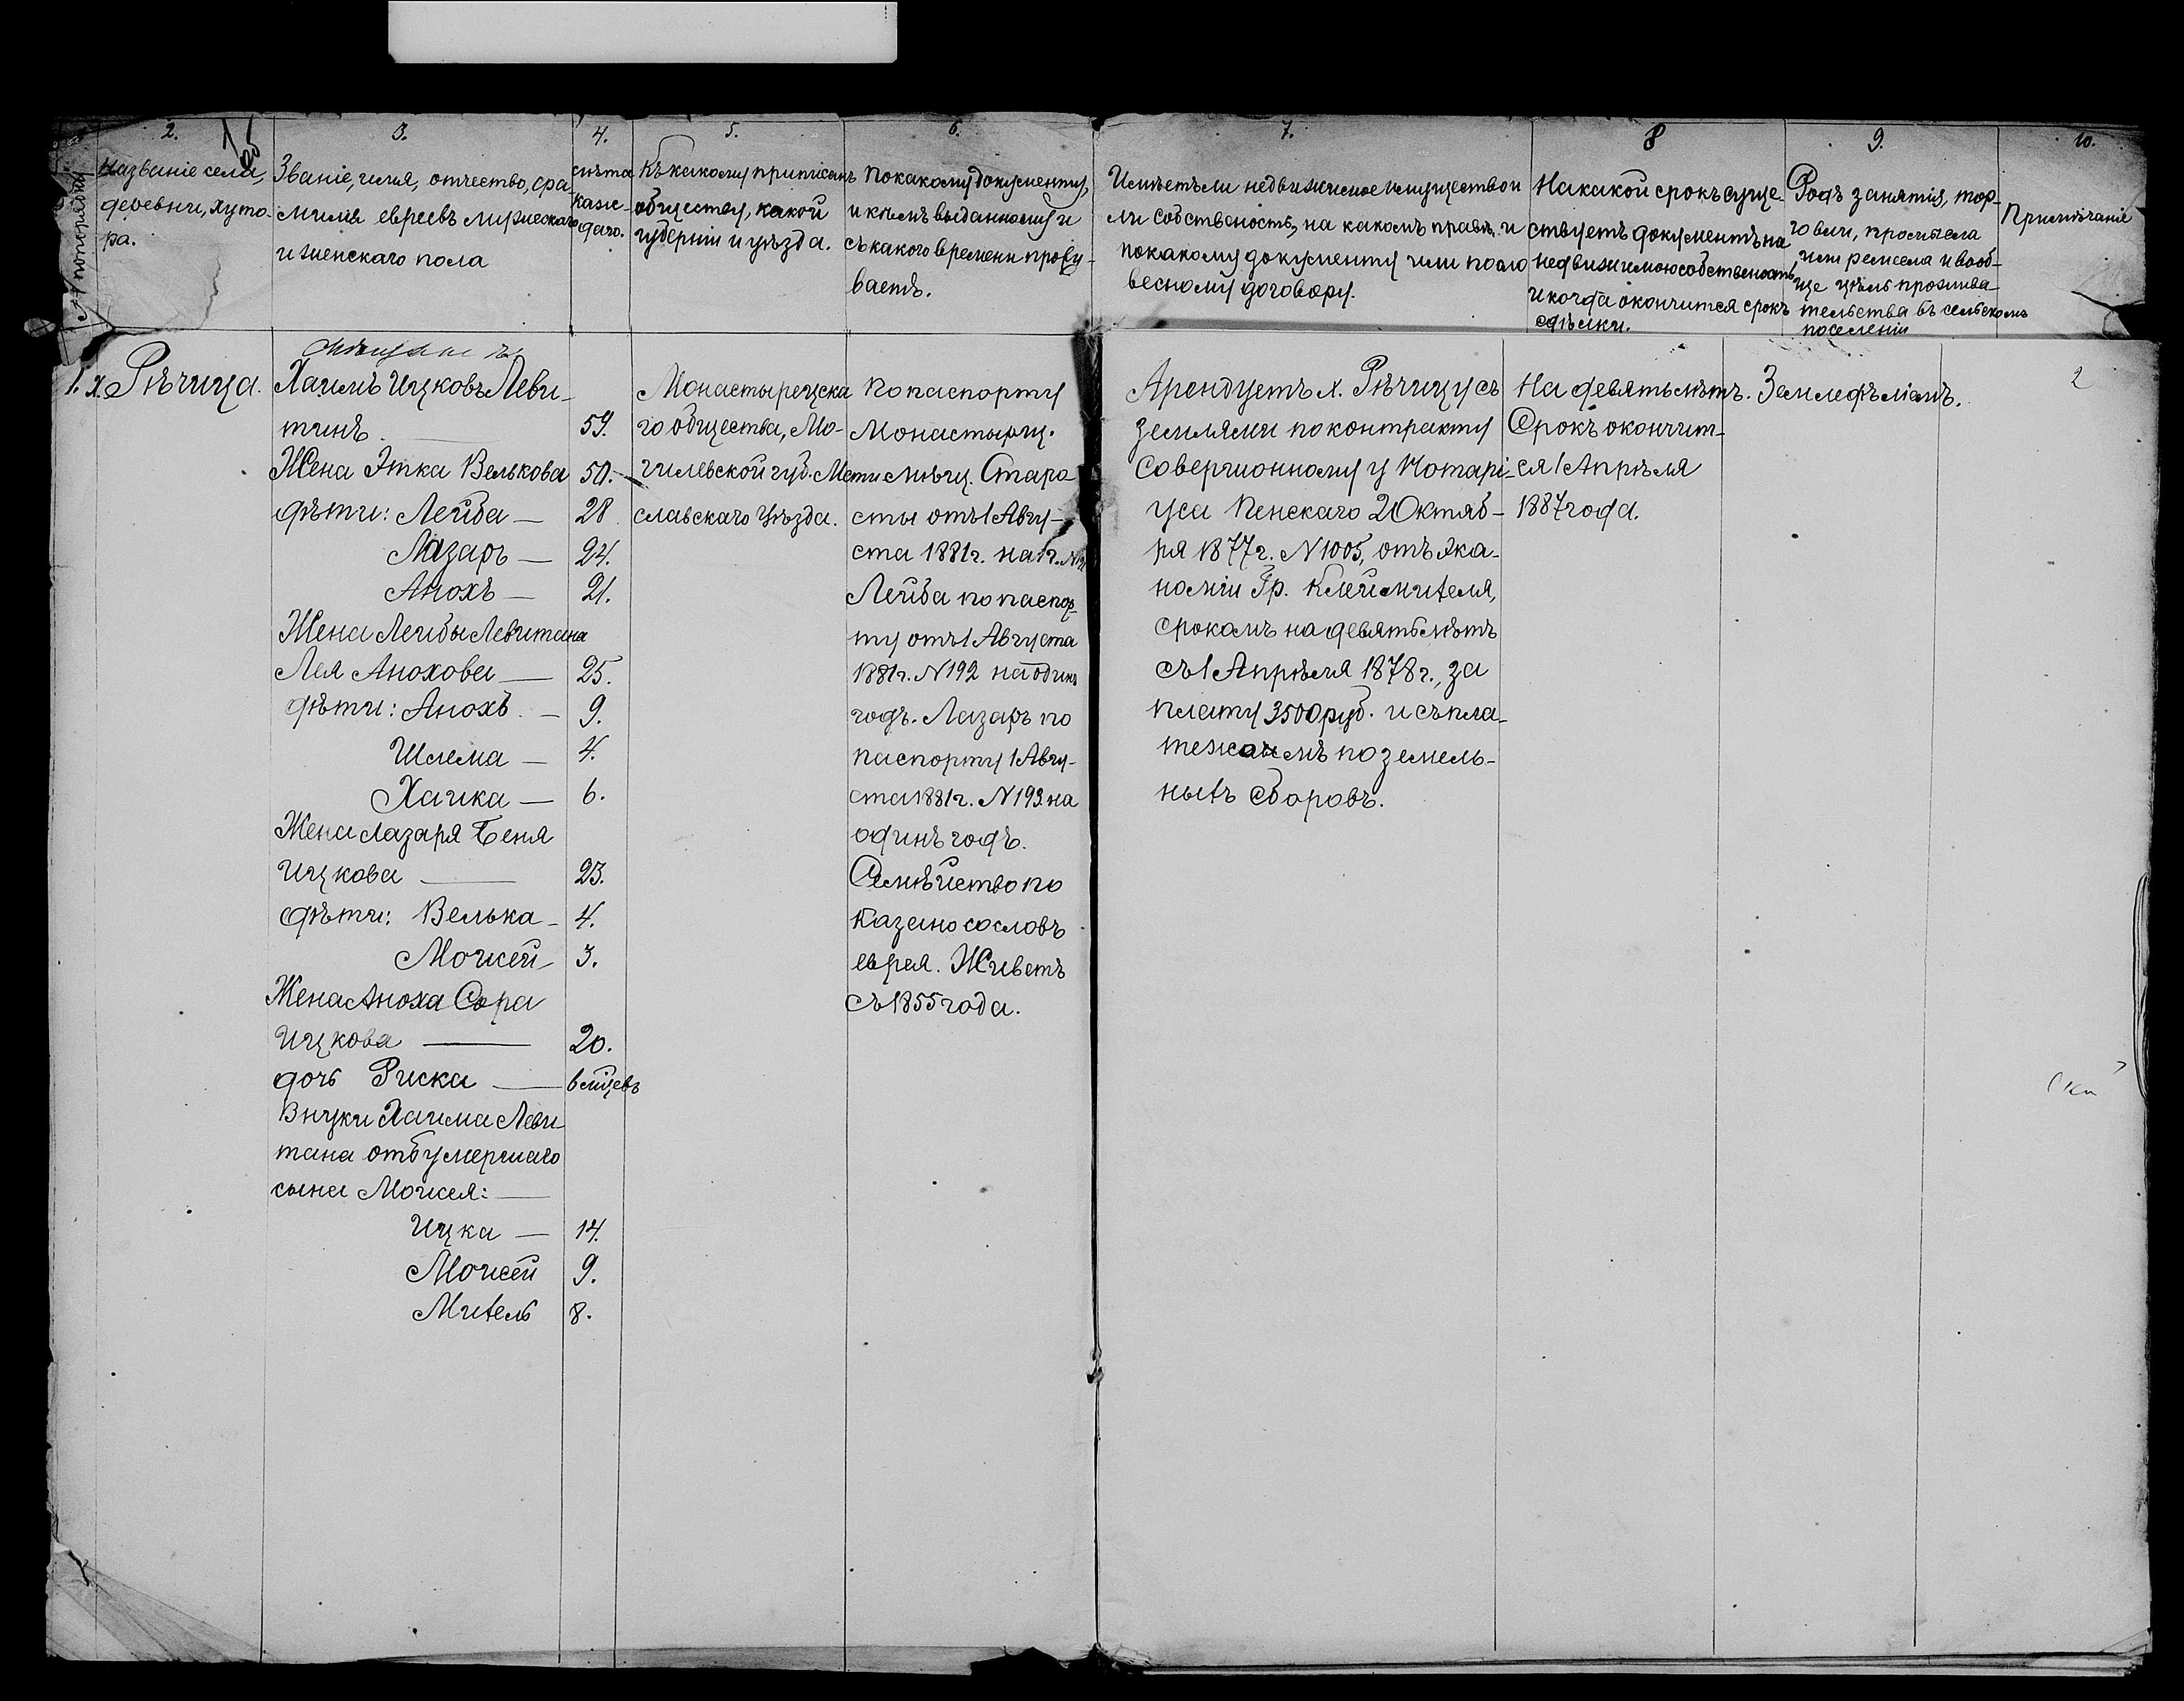 2.
Названіе села,
деревни, хуто-
ра.
№ по порядку
3.
Званіе, имя, отчество, фа-
милія евреевъ мужескаго
и женскаго пола
4.
Лѣта
каж-
даго.
5.
Къ какому приписанъ
обществу, какой
губерніи и уѣзда.
6.
По какому документу,
и кѣмъ выданному и
съ какого времени прожи-
ваетъ.
7.
Имѣетъ ли недвижимое имущество и
ли собственость, на какомъ правѣ и
по какому документу или по сло
весному договору.
8
На какой срокъ суще-
ствуетъ документъ на
недвижимою собственость,
и когда окончится срокъ
сдѣлки.
9.
Родъ занятія, тор-
говли, промысла
или ремсела и вооб-
ще цѣль прожива-
тельства въ сельскомъ
поселеніи
10.
Примѣчаніе
1. х. Рѣчица.
Мѣщане
Хаимъ Ицковъ Леви-
тинъ 59.
Жена Этка Велькова 50.
дѣти: Лейба — 28
Лазарь — 24.
Анохъ — 21.
Жена Лейбы Левитана
Лея Анохова — 25.
дѣти: Анохъ — 9.
Шлема — 4.
Хаика — 6.
Жена Лазаря Беня
Ицкова — 23.
дѣти: Велька — 4.
Моисей 3.
Жена Аноха Сора
Ицкова — 20.
дочь Риска — 6 мѣцевъ
Внуки Хаима Леви-
тана отъ умершаго
сына Моисея: —
Ицка — 14.
Моисей 9.
Митель 8.
Монастырецска
го общества, Мо-
гилевской губ. Мсти
славскаго Уѣзда.
По паспорту
Монастырщ.
Мѣщ. Старо-
сты отъ 1 Авгу-
ста 1881 г. на 1 г.
Лейба по паспор-
ту отъ 1 Августа
1881 г. №192 на одинъ
годъ. Лазарь по
паспорту 1 Авгу-
ста 1881 г. №193 на
одинъ годъ.
Семѣйство по
казано со словъ
еврея. Живетъ
съ 1855 года.
Арендуетъ х. Рѣчицу съ
землями по контракту
совершонному у Нотарі-
уса Пенскаго 2 Октяб-
ря 1877 г. №1005, отъ эка-
номіи Гр. Клейнмихеля,
срокамъ на девять лѣтъ
съ 1 Апрѣля 1878 г., за
плату 3500 руб. и съ пла-
тежомъ поземель-
ныхъ сборовъ.
На девять лѣтъ.
Срокъ окончит-
ся 1 Апрѣля
1887 года.
Земледѣліемъ.
2